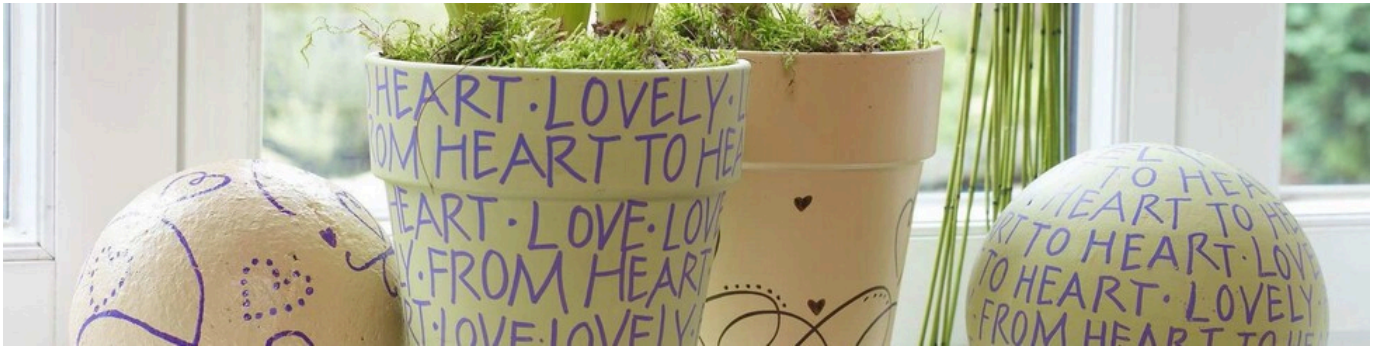 HEART · LOVELY ·
OM HEART TO HEA
HEART · LOVE · LOV
Y · FROM HEART
RT · LOVE · LOVELY ·
TO HEA
HEART TO HE
RT TO HEART · LOV
TO HEART · LOVELY ·
FROM HEART TO HE